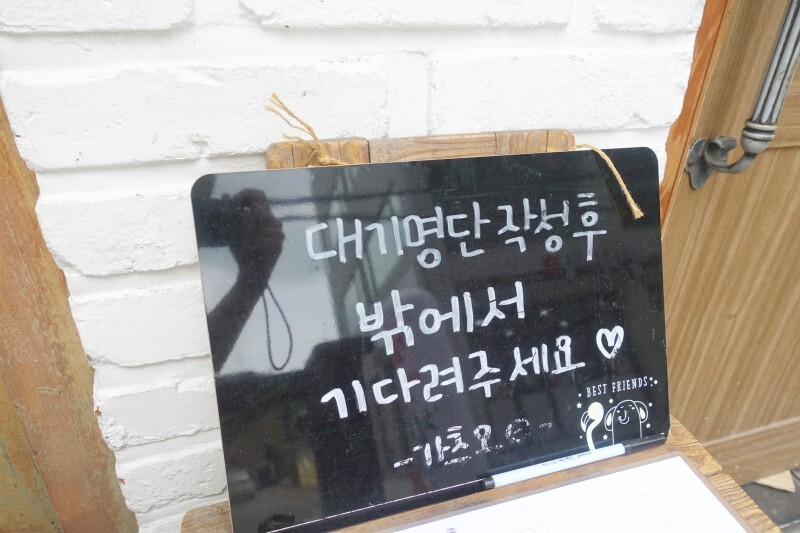 대기명단 작성후
밖에서
기다려주세요 ♡
BEST FRIENDS